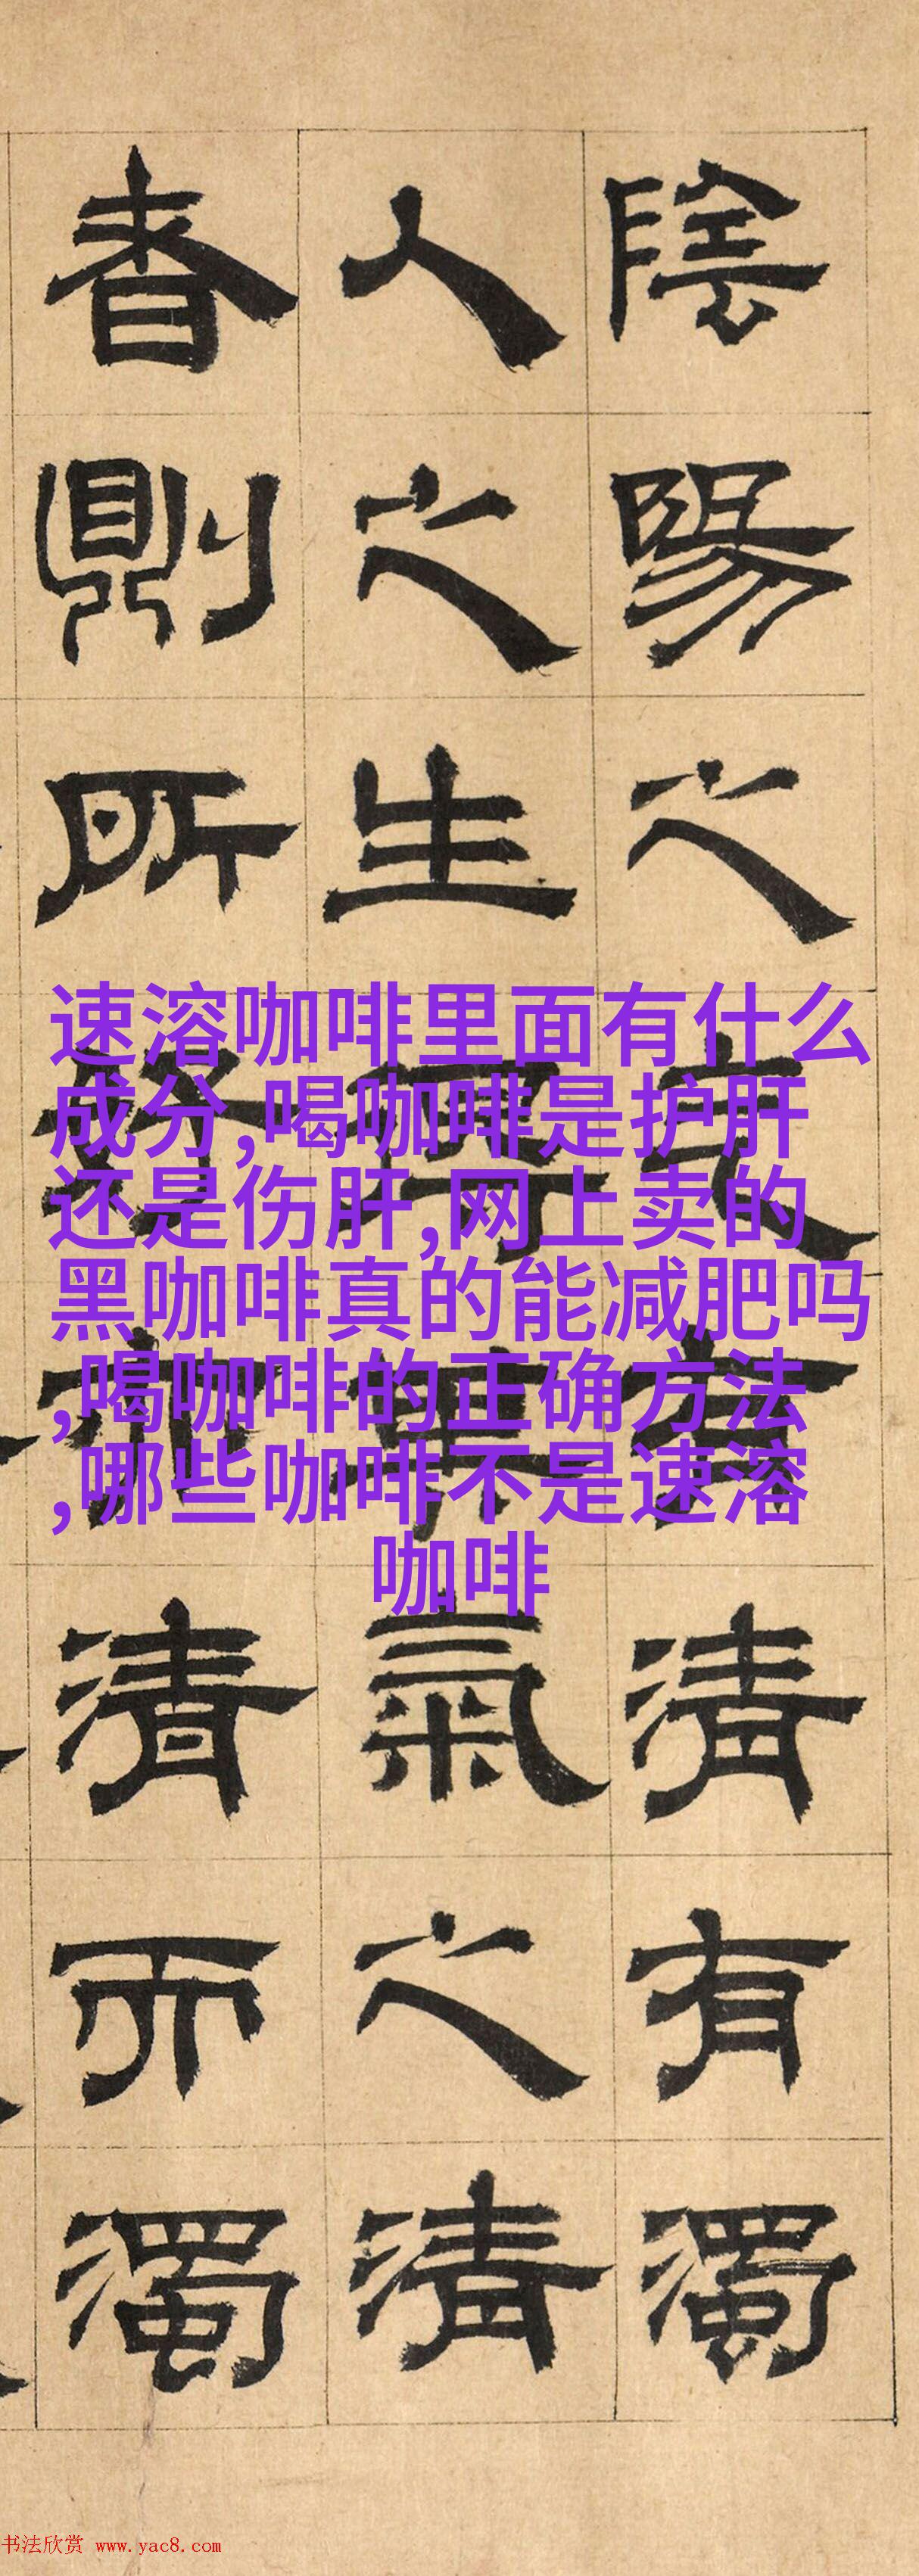 陰陽之清有濁
人之生氣之清
者則所清而濁
速溶咖啡里面有什么
成分,喝咖啡是护肝
还是伤肝,网上卖的
黑咖啡真的能减肥吗
,喝咖啡的正确方法
,哪些咖啡不是速溶
咖啡
书法欣赏 www.yac8.com